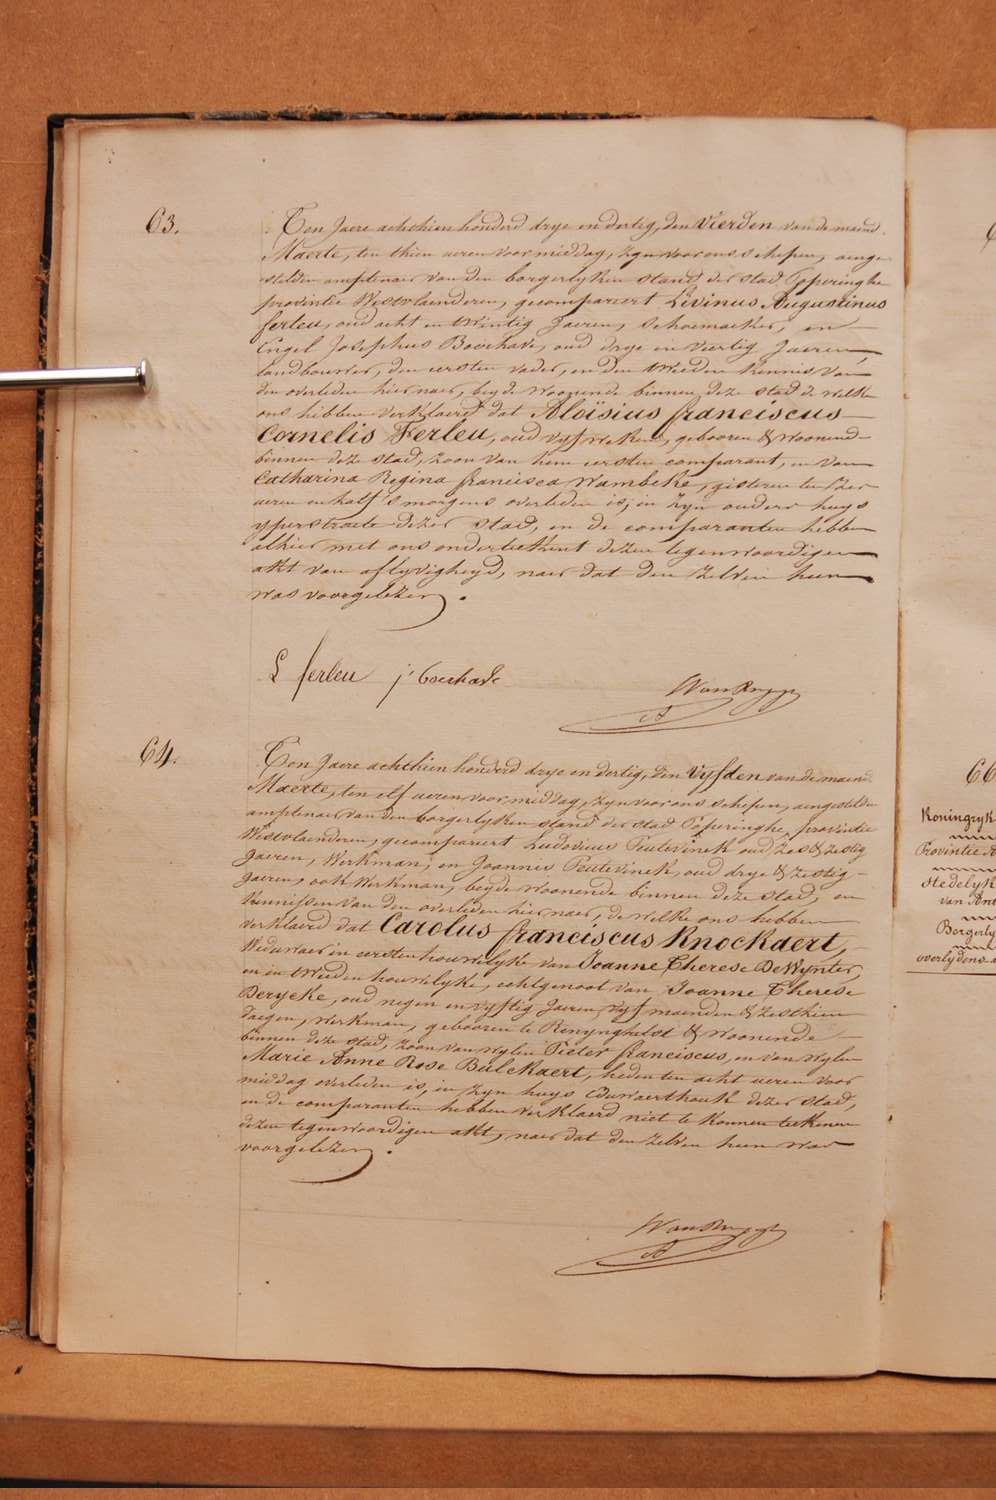 63.
Ten Jaere achthien honderd drye en dertig, den Vierden van de maend
Maerte, ten thien ueren voormiddag, zyn voor ons schepen, aenge-
stelden amptenaer van den borgerlyken stand der stad Poperinghe
provintie Westvlaenderen, gecompareert Livinus Augustinus
ferleu, oud acht en twintig Jaeren, Schoemaeker, en
Engel Josephus Boerhave, oud drye en viertig Jaeren,
landbouwer, den eersten vader, en den tweeden kennis van
den overleden hier naer, beyde woonende binnen deze stad de welke
ons hebben verklaerd dat Aloïsius franciscus
Cornelis Ferleu, oud vyf weken, gebooren & woonend
binnen deze stad, zoon van hem eersten comparant, en van
Catharina Regina francisca Wambeke, gisteren ten zes
ueren en half 's morgens overleden is, in zyn ouders huys
yperstraete dezer stad, en de comparanten hebben
alhier met ons onderteekent dezen tegenwoordigen
akt van aflyvigheyd, naer dat den zelven hun
was voorgelezen.
L ferleu j' Boerhave
Van
64.
Ten Jaere achthien honderd drye en dertig, den Vyfden van de maend
Maerte, ten elf ueren voormiddag, zyn voor ons schepen, aengestelden
amptenaer van den borgerlyken stand der stad Poperinghe, provintie
Westvlaenderen, gecompareert Ludovicus Peutevinck oud zes & zestig
Jaeren, Werkman, en Joannis Peutevinck, oud drye & zestig
Jaeren, ook Werkman, beyde woonende binnen deze stad, en
kennissen van den overleden hier naer, de welke ons hebben
verklaerd dat Carolus franciscus Knockaert,
Weduwaer in eersten houwelyke van Joanne Therese De Wynter,
en in tweeden houwelyke, echtgenoot van Joanne Therese
Berycke, oud negen en vyftig Jaeren, vyf maenden & zesthien
daegen, werkman, gebooren te Renynghelst & woonende
binnen deze stad, zoon van wylen Pieter franciscus, en van wylen
Marie Anne Rose Bulckaert, heden ten acht ueren voor
middag overleden is, in zyn huys Eduwaerthoek dezer stad,
en de comparanten hebben verklaerd niet te konnen teekenen
dezen tegenwoordigen akt, naer dat den zelven hun was
voorgelezen.
Van
66
Koningryk
Provintie
Stedelyk
van
Borgerly
overlydens